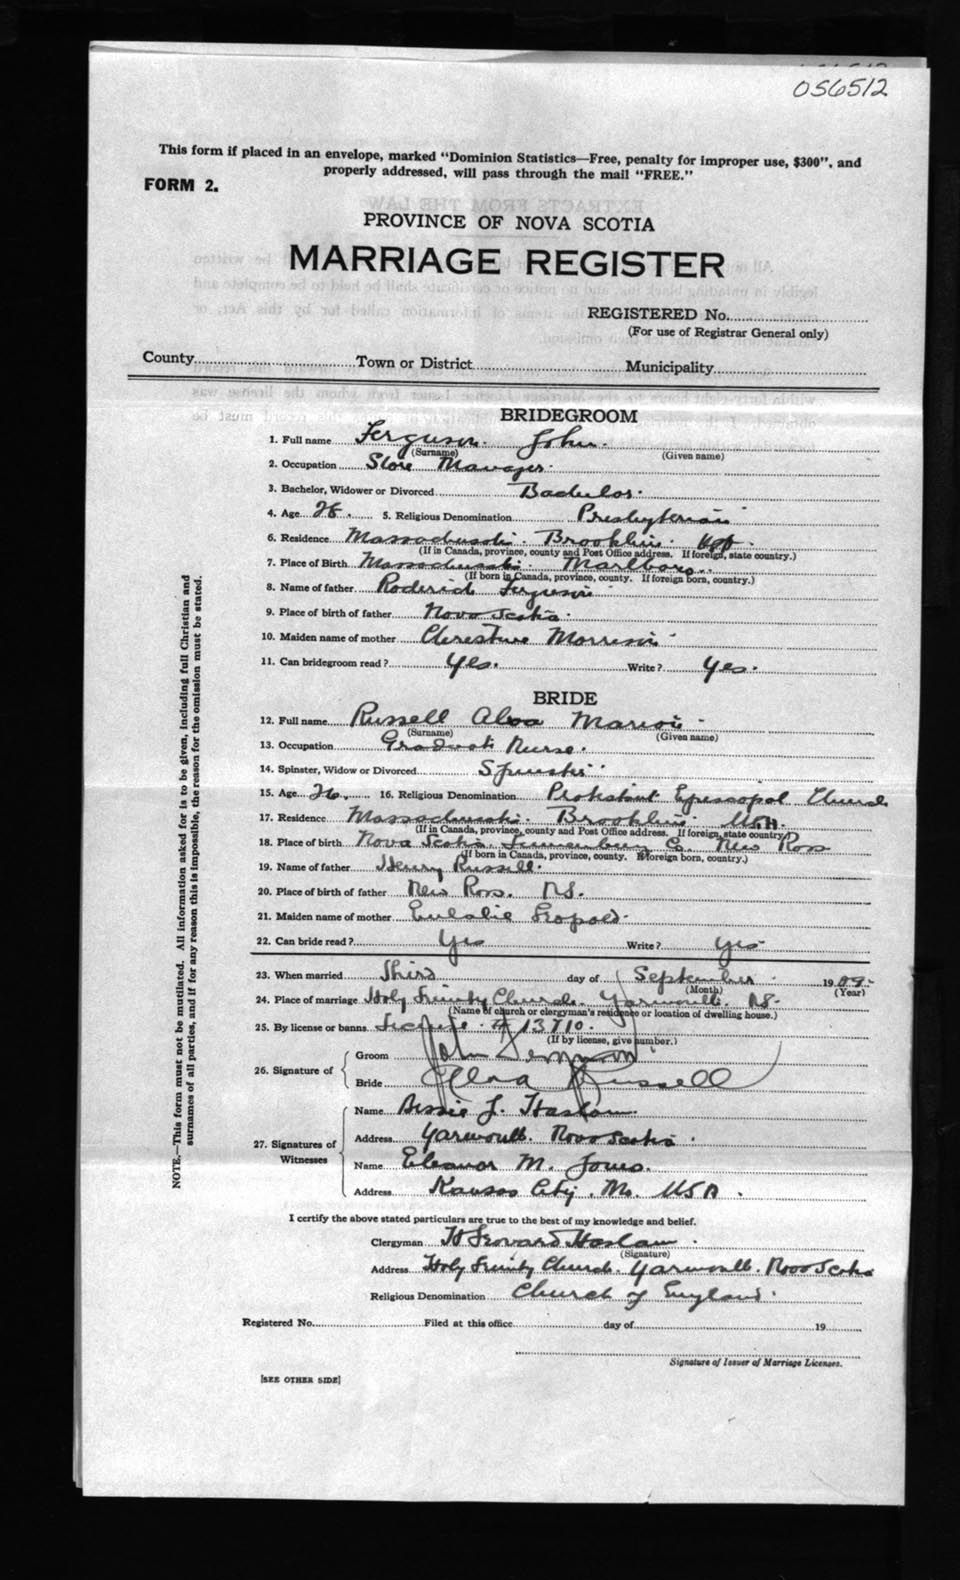 056512
This form if placed in an envelope, marked "Dominion Statistics—Free, penalty for improper use, $300", and
properly addressed, will pass through the mail "FREE."
FORM 2.
PROVINCE OF NOVA SCOTIA
MARRIAGE REGISTER
REGISTERED No.
(For use of Registrar General only)
County Town or District Municipality
BRIDEGROOM
1. Full name Ferguson John
(Surname) (Given name)
2. Occupation Store Manager
3. Bachelor, Widower or Divorced Bachelor
4. Age 28 5. Religious Denomination Presbyterian
6. Residence Massachusetts Brookline
(If in Canada, province, county and Post Office address. If foreign, state country.)
7. Place of Birth Massachusetts Marlboro
(If born in Canada, province, county. If foreign born, country.)
8. Name of father Roderick Ferguson
9. Place of birth of father Nova Scotia
10. Maiden name of mother Morrison
11. Can bridegroom read? Yes. Write? Yes.
BRIDE
12. Full name Russell Marion
(Surname) (Given name)
13. Occupation Graduate Nurse.
14. Spinster, Widow or Divorced Spinster
15. Age 26. 16. Religious Denomination Protestant Episcopal Church
17. Residence Massachusetts. Brookline U.S.A.
(If in Canada, province, county and Post Office address. If foreign, state country.)
18. Place of birth Nova Scotia. Lunenburg Co. New Ross
(If born in Canada, province, county. If foreign born, country.)
19. Name of father Henry Russell.
20. Place of birth of father New Ross. N.S.
21. Maiden name of mother Eulalie Leopold.
22. Can bride read? Yes Write? Yes
23. When married Third day of September 19
(Month) (Year)
24. Place of marriage Holy Trinity Church. Yarmouth. N.S.
(Name of church or clergyman's residence or location of dwelling house.)
25. By license or banns License. # 13710.
(If by license, give number.)
26. Signature of Groom John Ferguson
Bride Russell
27. Signatures of Witnesses
Name Bessie L. Haslam
Address Yarmouth. Nova Scotia.
Name Eleanor M. Jones.
Address Kansas City. Mo. USA.
I certify the above stated particulars are true to the best of my knowledge and belief.
Clergyman Leonard Haslam
(Signature)
Address Holy Trinity Church. Yarmouth. Nova Scotia
Religious Denomination Church of England.
Registered No. Filed at this office day of 19
Signature of Issuer of Marriage Licenses.
[SEE OTHER SIDE]
NOTE.—This form must not be mutilated. All information asked for is to be given, including full Christian and
surnames of all parties, and if for any reason this is impossible, the reason for the omission must be stated.